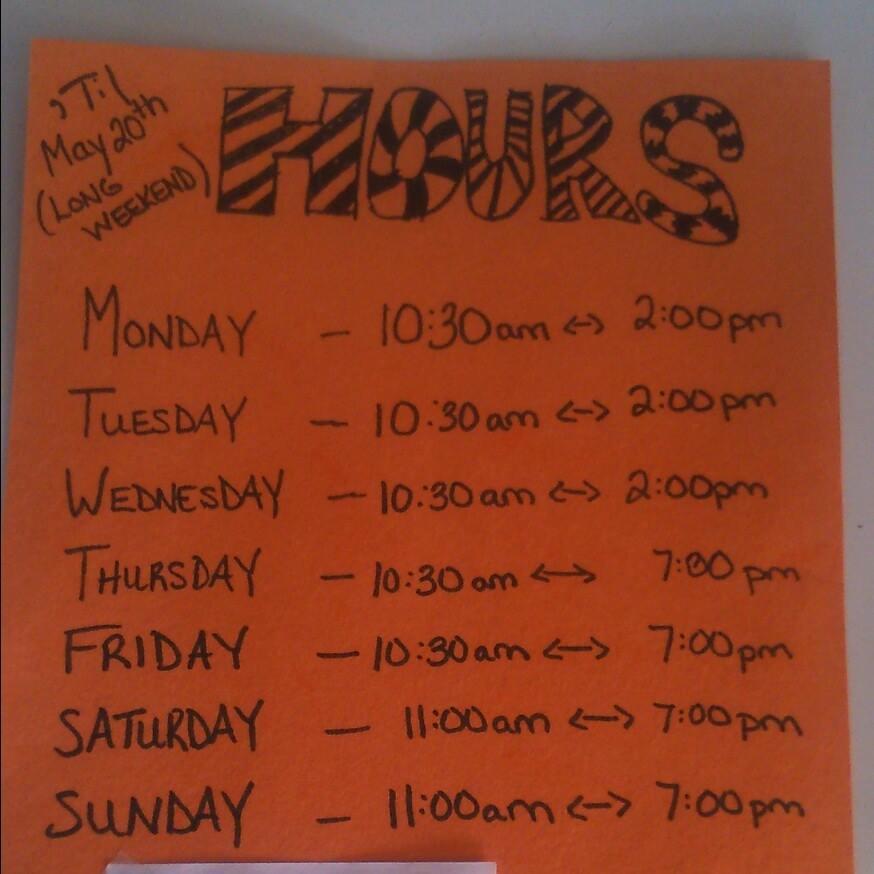 'Til
May 20th
(LONG
WEEKEND)
HOURS
MONDAY — 10:30am <-> 2:00pm
TUESDAY — 10:30am <-> 2:00pm
WEDNESDAY — 10:30am <-> 2:00pm
THURSDAY — 10:30am <-> 7:00pm
FRIDAY — 10:30am <-> 7:00pm
SATURDAY — 11:00am <-> 7:00pm
SUNDAY — 11:00am <-> 7:00pm